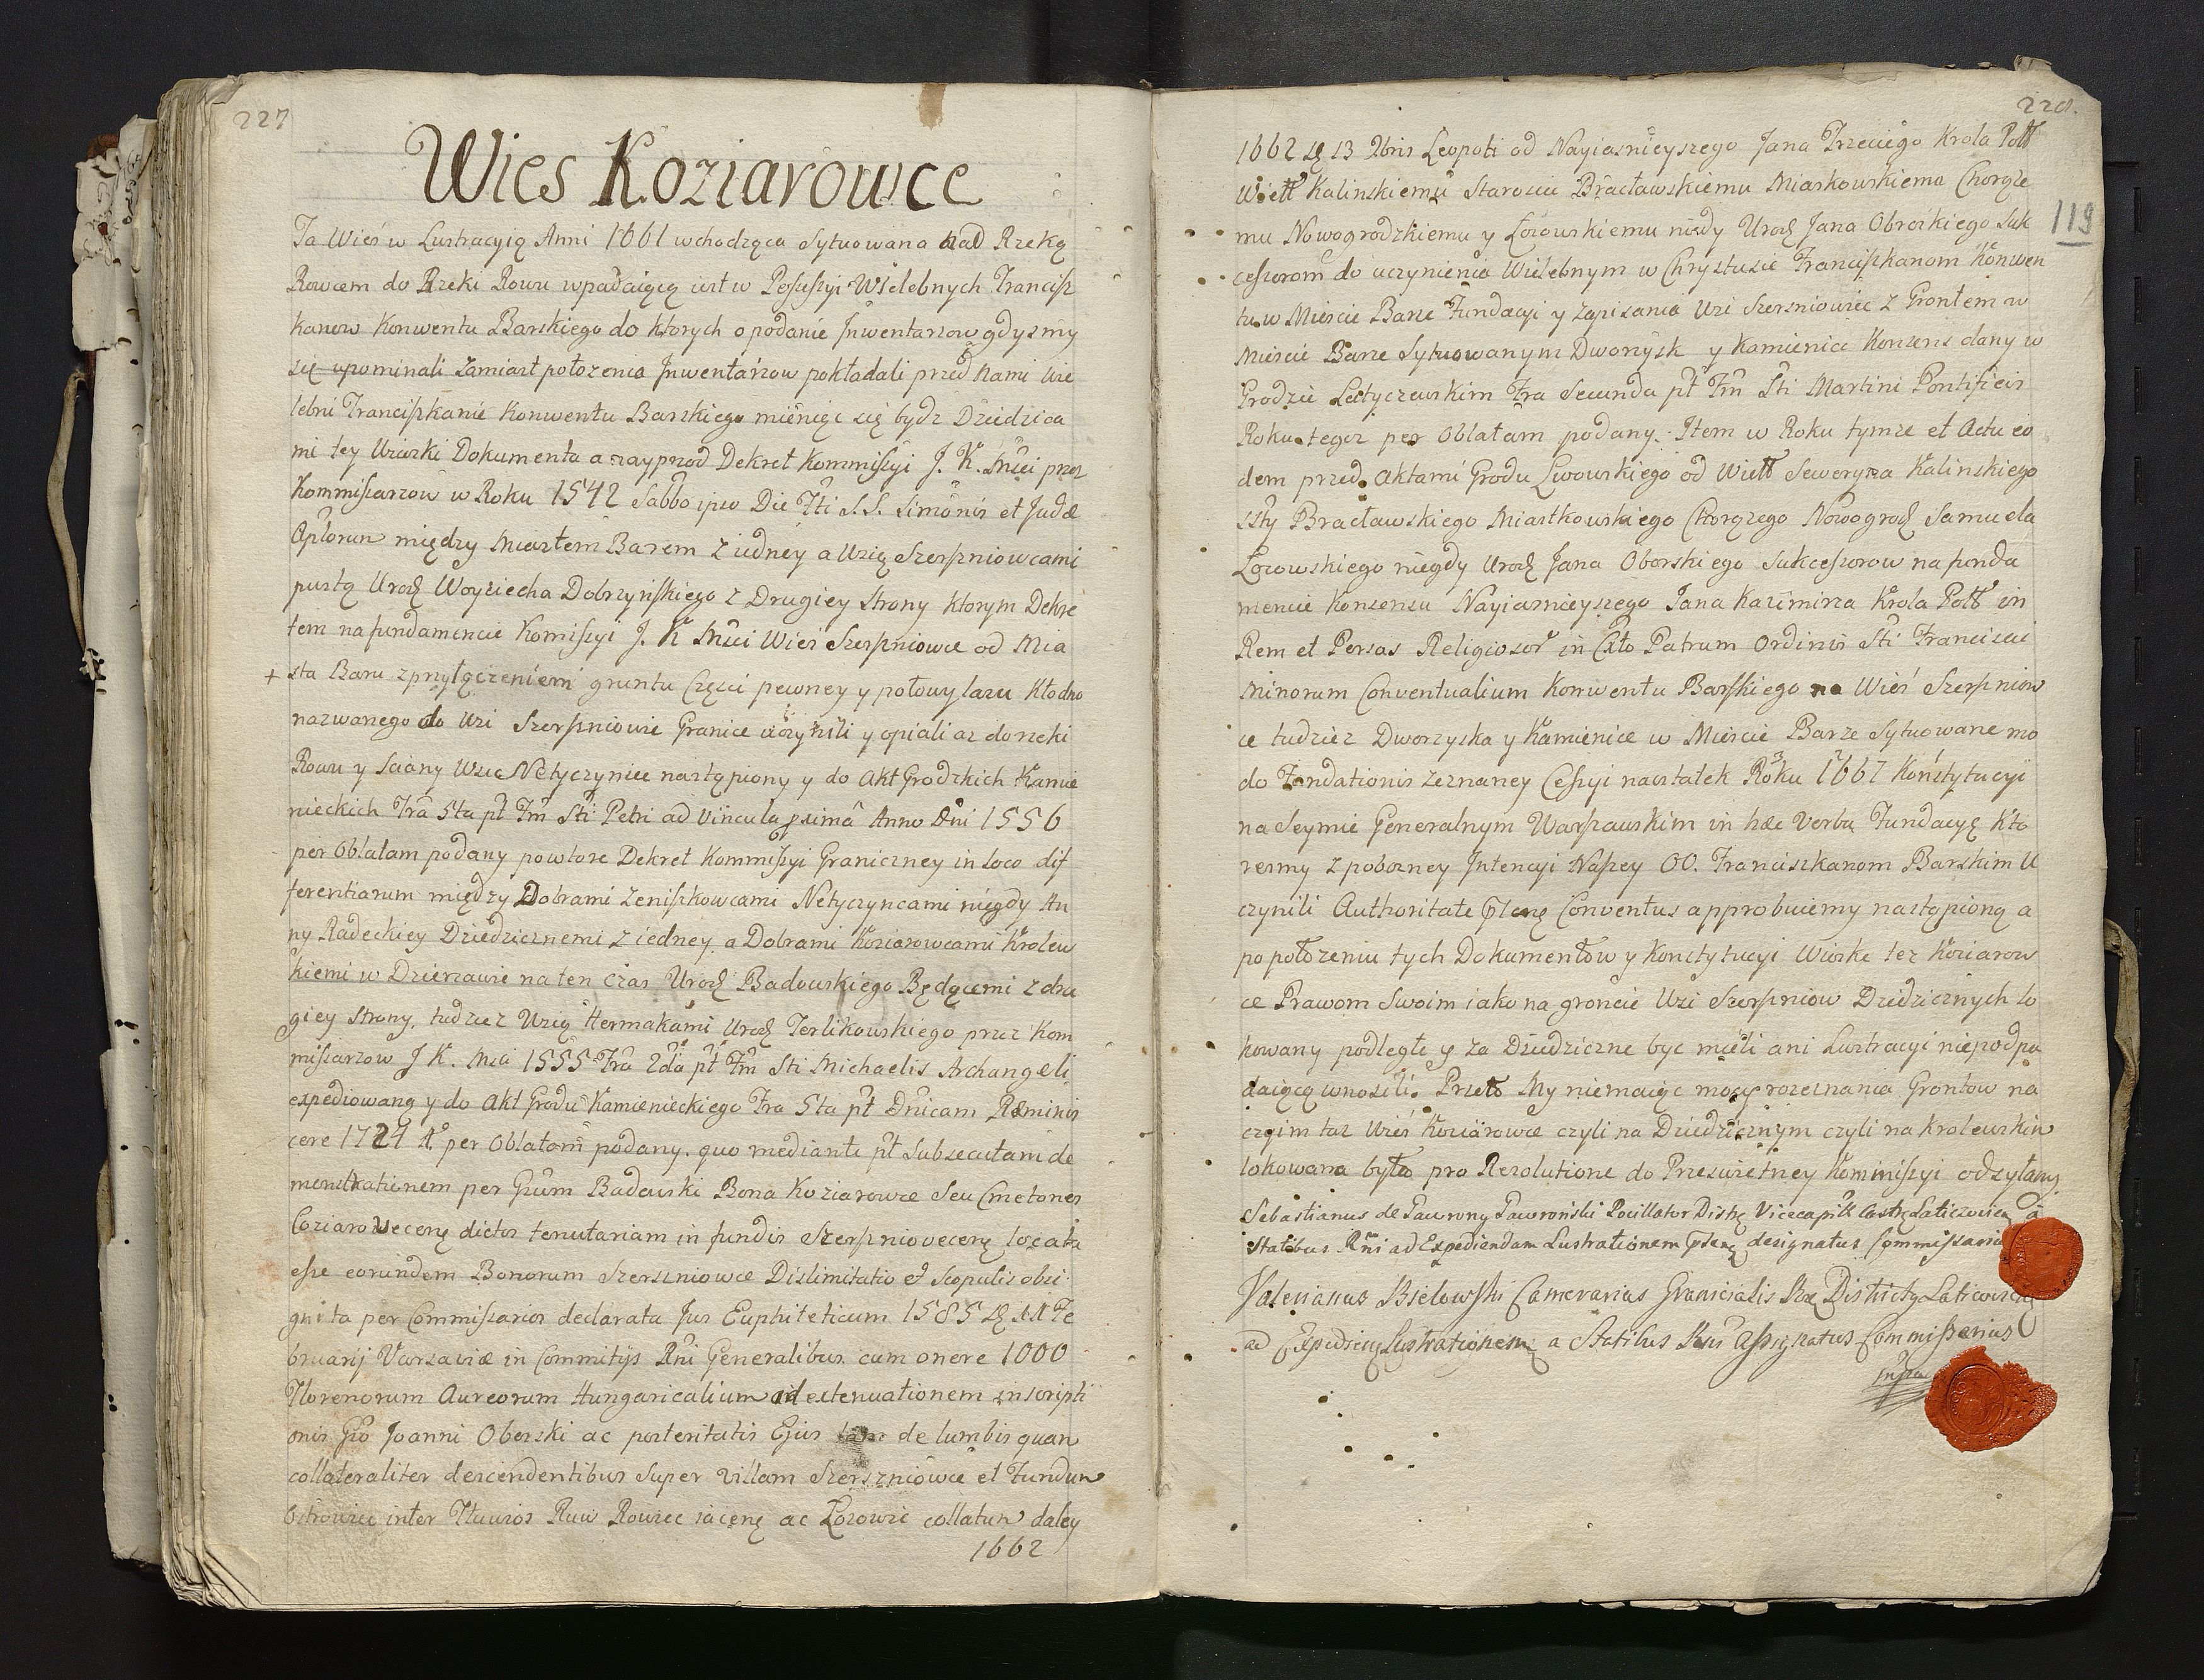 227
Wies Koziarowce
Ta Wieś w Lustracyią Anni 1661 wchodząca Sytuowana nad Rzeką
Rowcem do Rzeki Rowu wpadaiącą iest w Possessyi Wielebnych Francisz
kanow Konwentu Barskiego do ktorych o podanie Jnwentarzow gdysmy
się upominali zamiast połozenia Jnwentarzow pokładali przed nami Wie
lebni Franciszkanie Konwentu Barskiego mieniąc się bydz Dziedzica
mi tey Wioski Dokumenta a nayprzod Dekret Kommissyi J. K. Mści przez
Kommissarzow w Roku 1542 Sabbo ipso Die Fti S.S. Simonis et Judæ
Aplorun między Miastem Barem z iedney a Wsią Szerszniowcami
pustą Urodz Woyciecha Dobrzynskiego z Drugiey Strony ktorym Dekre
tem na fundamencie Komissyi J. K Mści Wieś Szerszniowce od Mia
+ sta Baru z przyłączeniem gruntu Częsci pewney y połowy lazu Kłodno
nazwanego do Wsi Szerszniowie Granice uczynili y opisali az do rzeki
Rowu y Sciany Wsie Netyczynice nastąpiony y do Akt Grodzkich Kamie
nieckich Fra 5ta pt Fm Sti Petri ad Vincula prima Anno Dni 1556
per Oblatam podany powtore Dekret Kommissyi Graniczney in loco dif
ferentiarum między Dobrami Zeniszkowcami Netyczyncami niegdy An
ny Radeckiey Dziedzicznemi z iedney a Dobrami Koziarowcami Krolew
skiemi w Dzierzawie na ten czas Urodz Badowskiego Będącemi z dru
giey strony, tudziez Wsią Hermakami Urodz Terlikowskiego przez Kom
missarzow J K. Mci 1555 Fra 2da pt Fm Sti Michaelis Archangeli
expediowang y do Akt Grodu Kamienieckiego Fra 5ta pt Dnicam Reminis
cere 1724 A° per Oblatam podany. quo mediante pt Subsecutam de
monstrationem per Gsum Badowski Bona Koziarowce Seu Cmetones
Coziarowecenę dictos tenutariam in fundis Szerszniovecenę locata
esse eorundem Bonorum Szerszniowce Dislimitatio et Scopulis obsi
gnita per Commissarios declarata Jus Emphiteticum 1585 Fe
bruarij Varsaviæ in Commitijs Rni Generalibus cum onere 1000
Florenorum Aureorum Hungaricalium ad extenuationem inscripti
onis Gso Joanni Oborski ac posteritatis Ejus tam de lumbis quan
collateraliter descendentibus Super villam Szerszniowce et Fundun
Ostrowiec inter Fluvios Ruw Rowiec iacenę ac Łozowie collatun daley
1662
228.
119
1662 13 9bris Leopoli od Nayiasnieyszego Jana Trzeciego Krola Poll
Wiell Kalinskiemu Staroscie Bracławskiemu Miaskowskiemu Chorąże
mu Nowogrodzkiemu y Łozowskiemu niedy Urodz Jana Oborskiego Suk
cessorom do uczynienia Wielebnym w Chrystusie Franciszkanom Konwen
tu w Miescie Barze Fundacyi y zapisania Wsi Szersniowiec z Grontem w
Miescie Barze Sytuowanym Dworzysk y Kamienice Konsens dany w
Grodzie Latyczewskim Fra Secunda pt Fm Sti Martini Pontificis
Roku tegoz per Oblatam podany. Item w Roku tymze et Actu eo
dem przed Aktami Grodu Lwowskiego od Wiell Seweryna Kalinskiego
Stty Bracławskiego Miastkowskiego Chorązego Nowogrodz Samuela
Łozowskiego niegdy Urodz Jana Oborskiego Sukcessorow na funda
mencie Konsensu Nayiasnieyszego Jana Kazimirza Krola Poll in
Rem et Persas Religiosor in Xto Patrum Ordinis Sti Francisci
Minorum Conventualium Konwentu Barskiego na Wieś Szerszniow
ce tudziez Dworzyska y Kamienice w Miescie Barze Sytuowane mo
do Fondationis zeznaney Cessyi nastatek Roku 1667 Konstytucyi
na Seymie Generalnym Warszawskim in hæc verba Fundacyę Kto
resmy z poboznej Jntencyi Naszey OO. Franciszkanom Barskim U
czynili Authoritate Ptenę Conventus approbuiemy nastąpioną a
po połozeniu tych Dokumentow y Konstytucyi Wioskę tez Koziarow
ce Prawom Swoim iako na groncie Wsi Szerszniow Dziedzicznych lo
kowany podległe y za Dziedziczne byc mieli ani Lustracyi niepodpa
daiącą wnosili. Przeto My niemaiąc mocy rozeznania Grontow na
czyim taz Wieś Koziarowce czyli na Dziedzicznym czyli na krolewskim
lokowana była pro Rezolutione do Przeswietney Kommissyi odsyłamy
Sebastianus de Gawrony Gawroński Pocillator Districtus Vicecaptt Castrę Laticzoviens a
Statibus Rni ad Expediendam Lustrationem Ptenę designatus Commissarius
Valerianus Bielowski Camerarius Granicialis Districtus Laticoviens
ad Expediendę Lustrationem a Statibus Rni Assignatus Commissarius